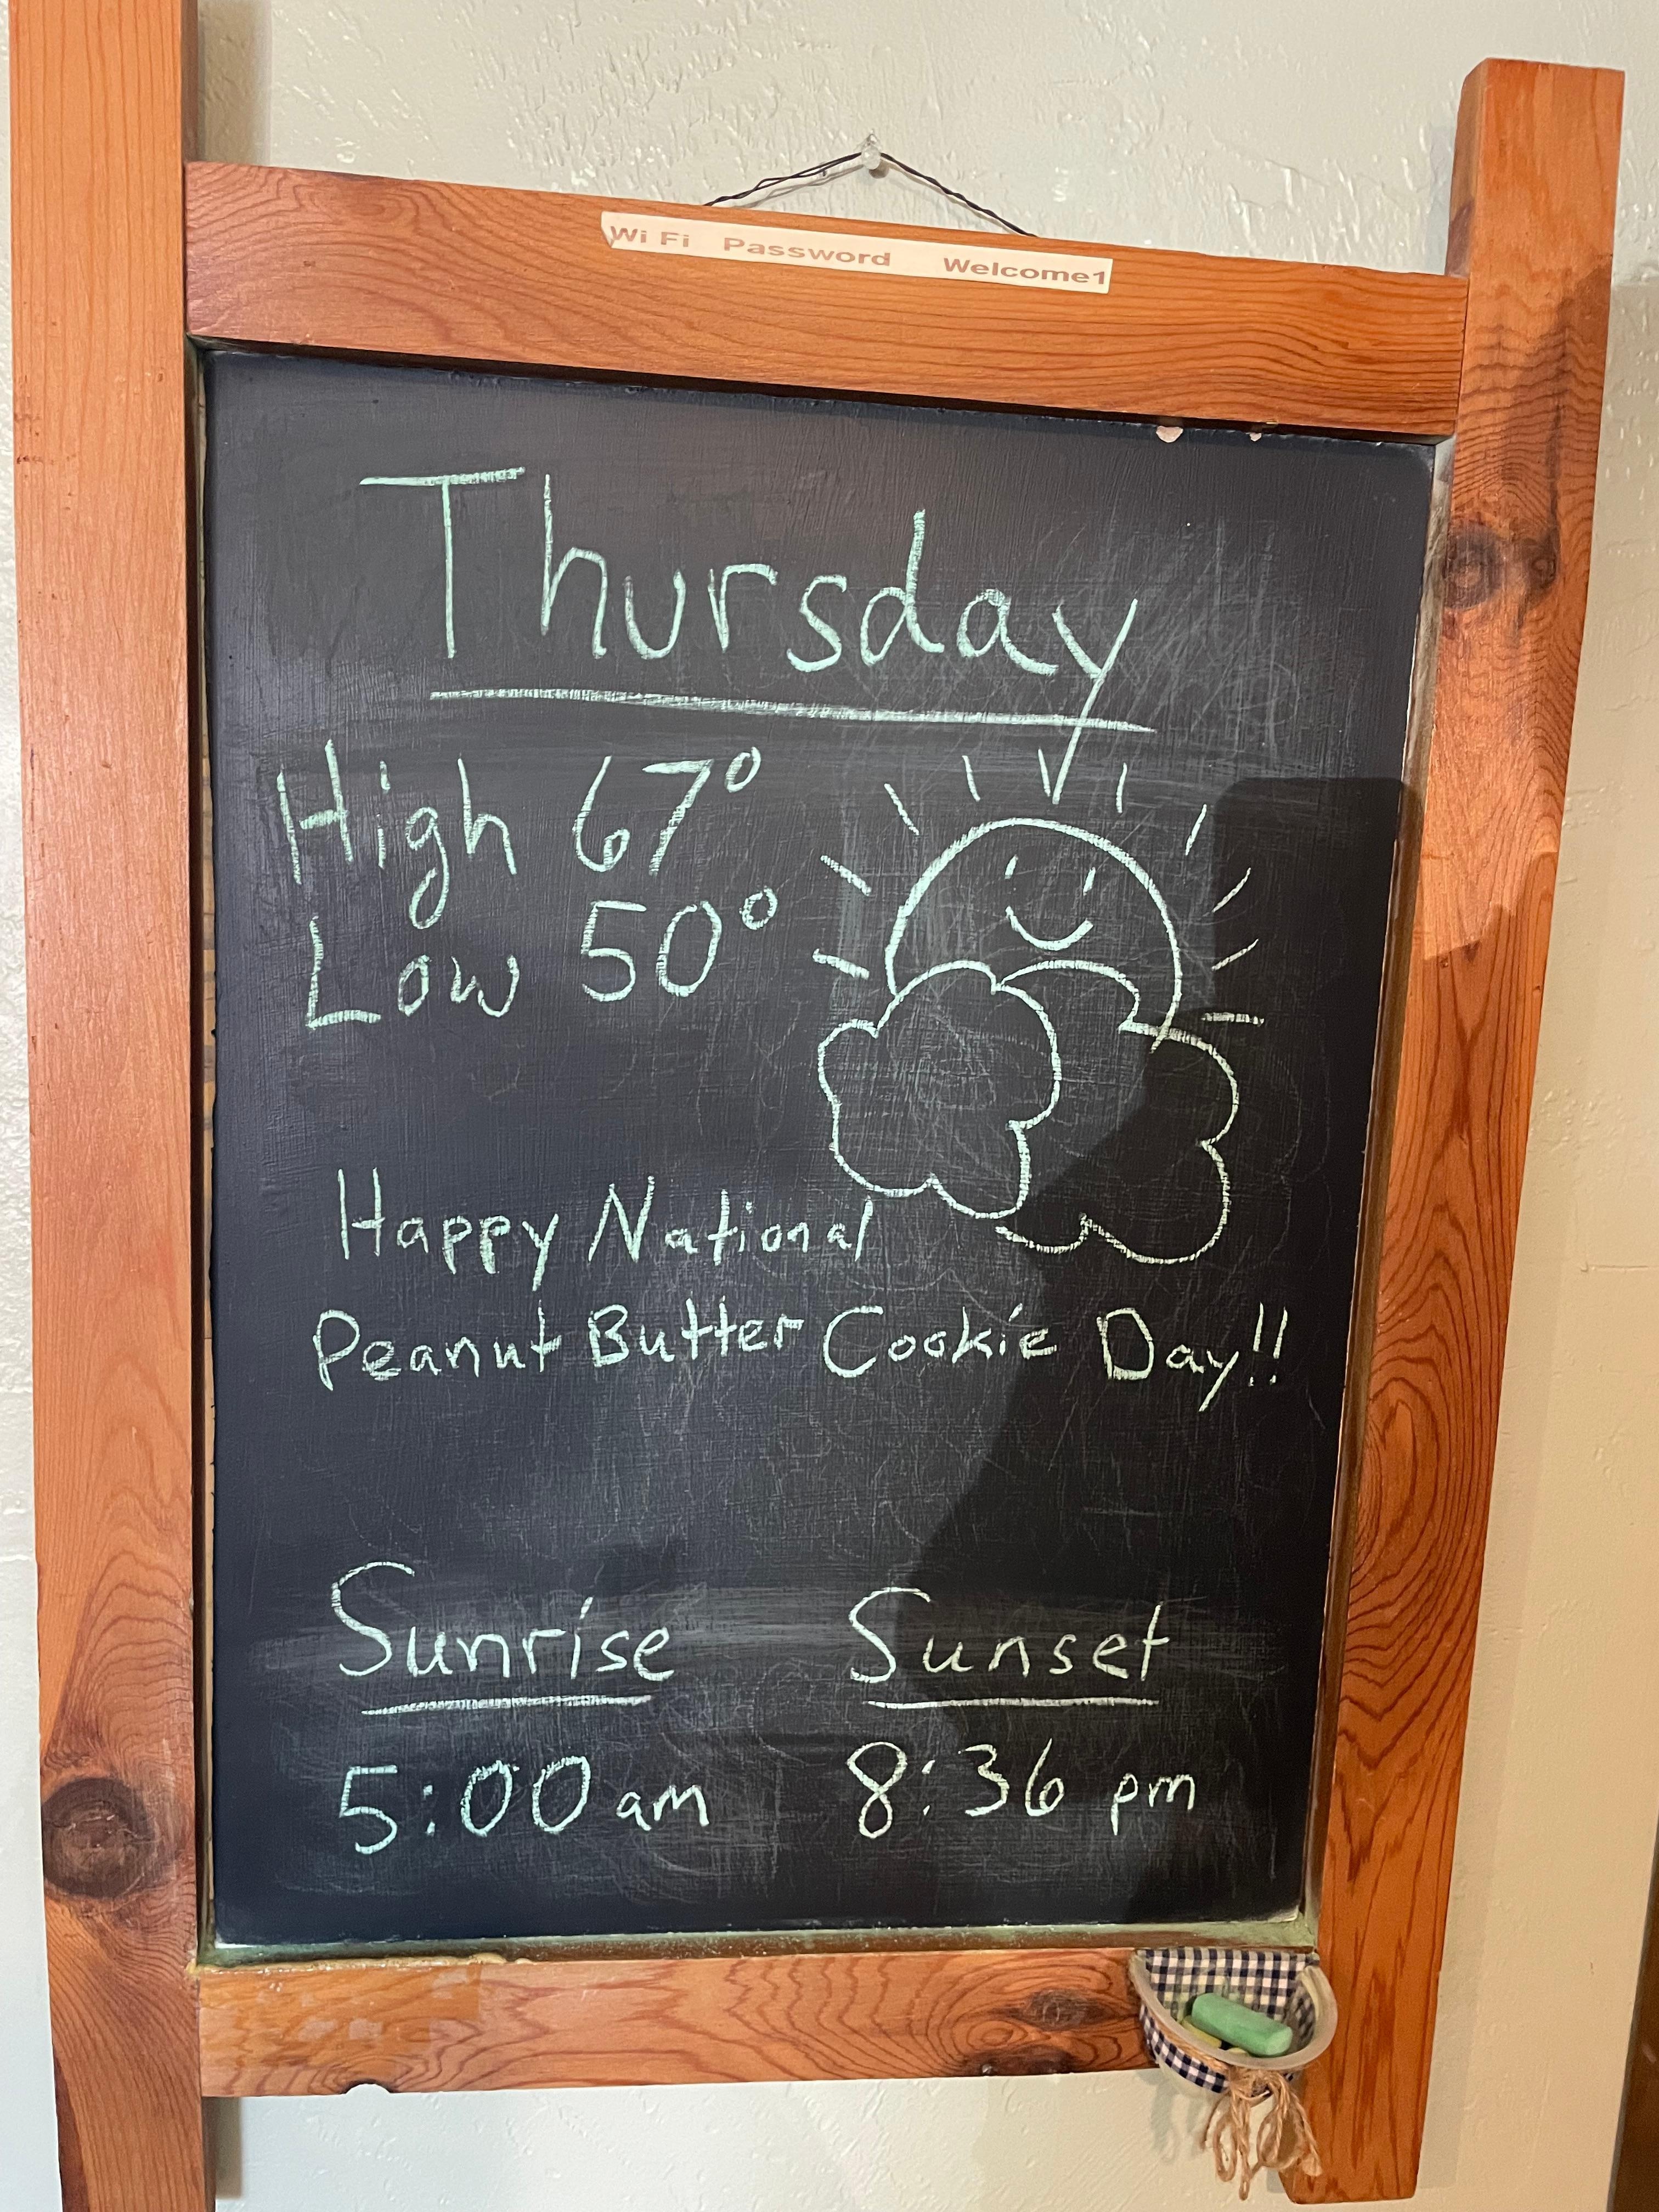 Wi Fi Password Welcome1
Thursday
High 67°
Low 50°
Happy National
Peanut Butter Cookie Day!!
Sunrise Sunset
5:00 am 8:36 pm